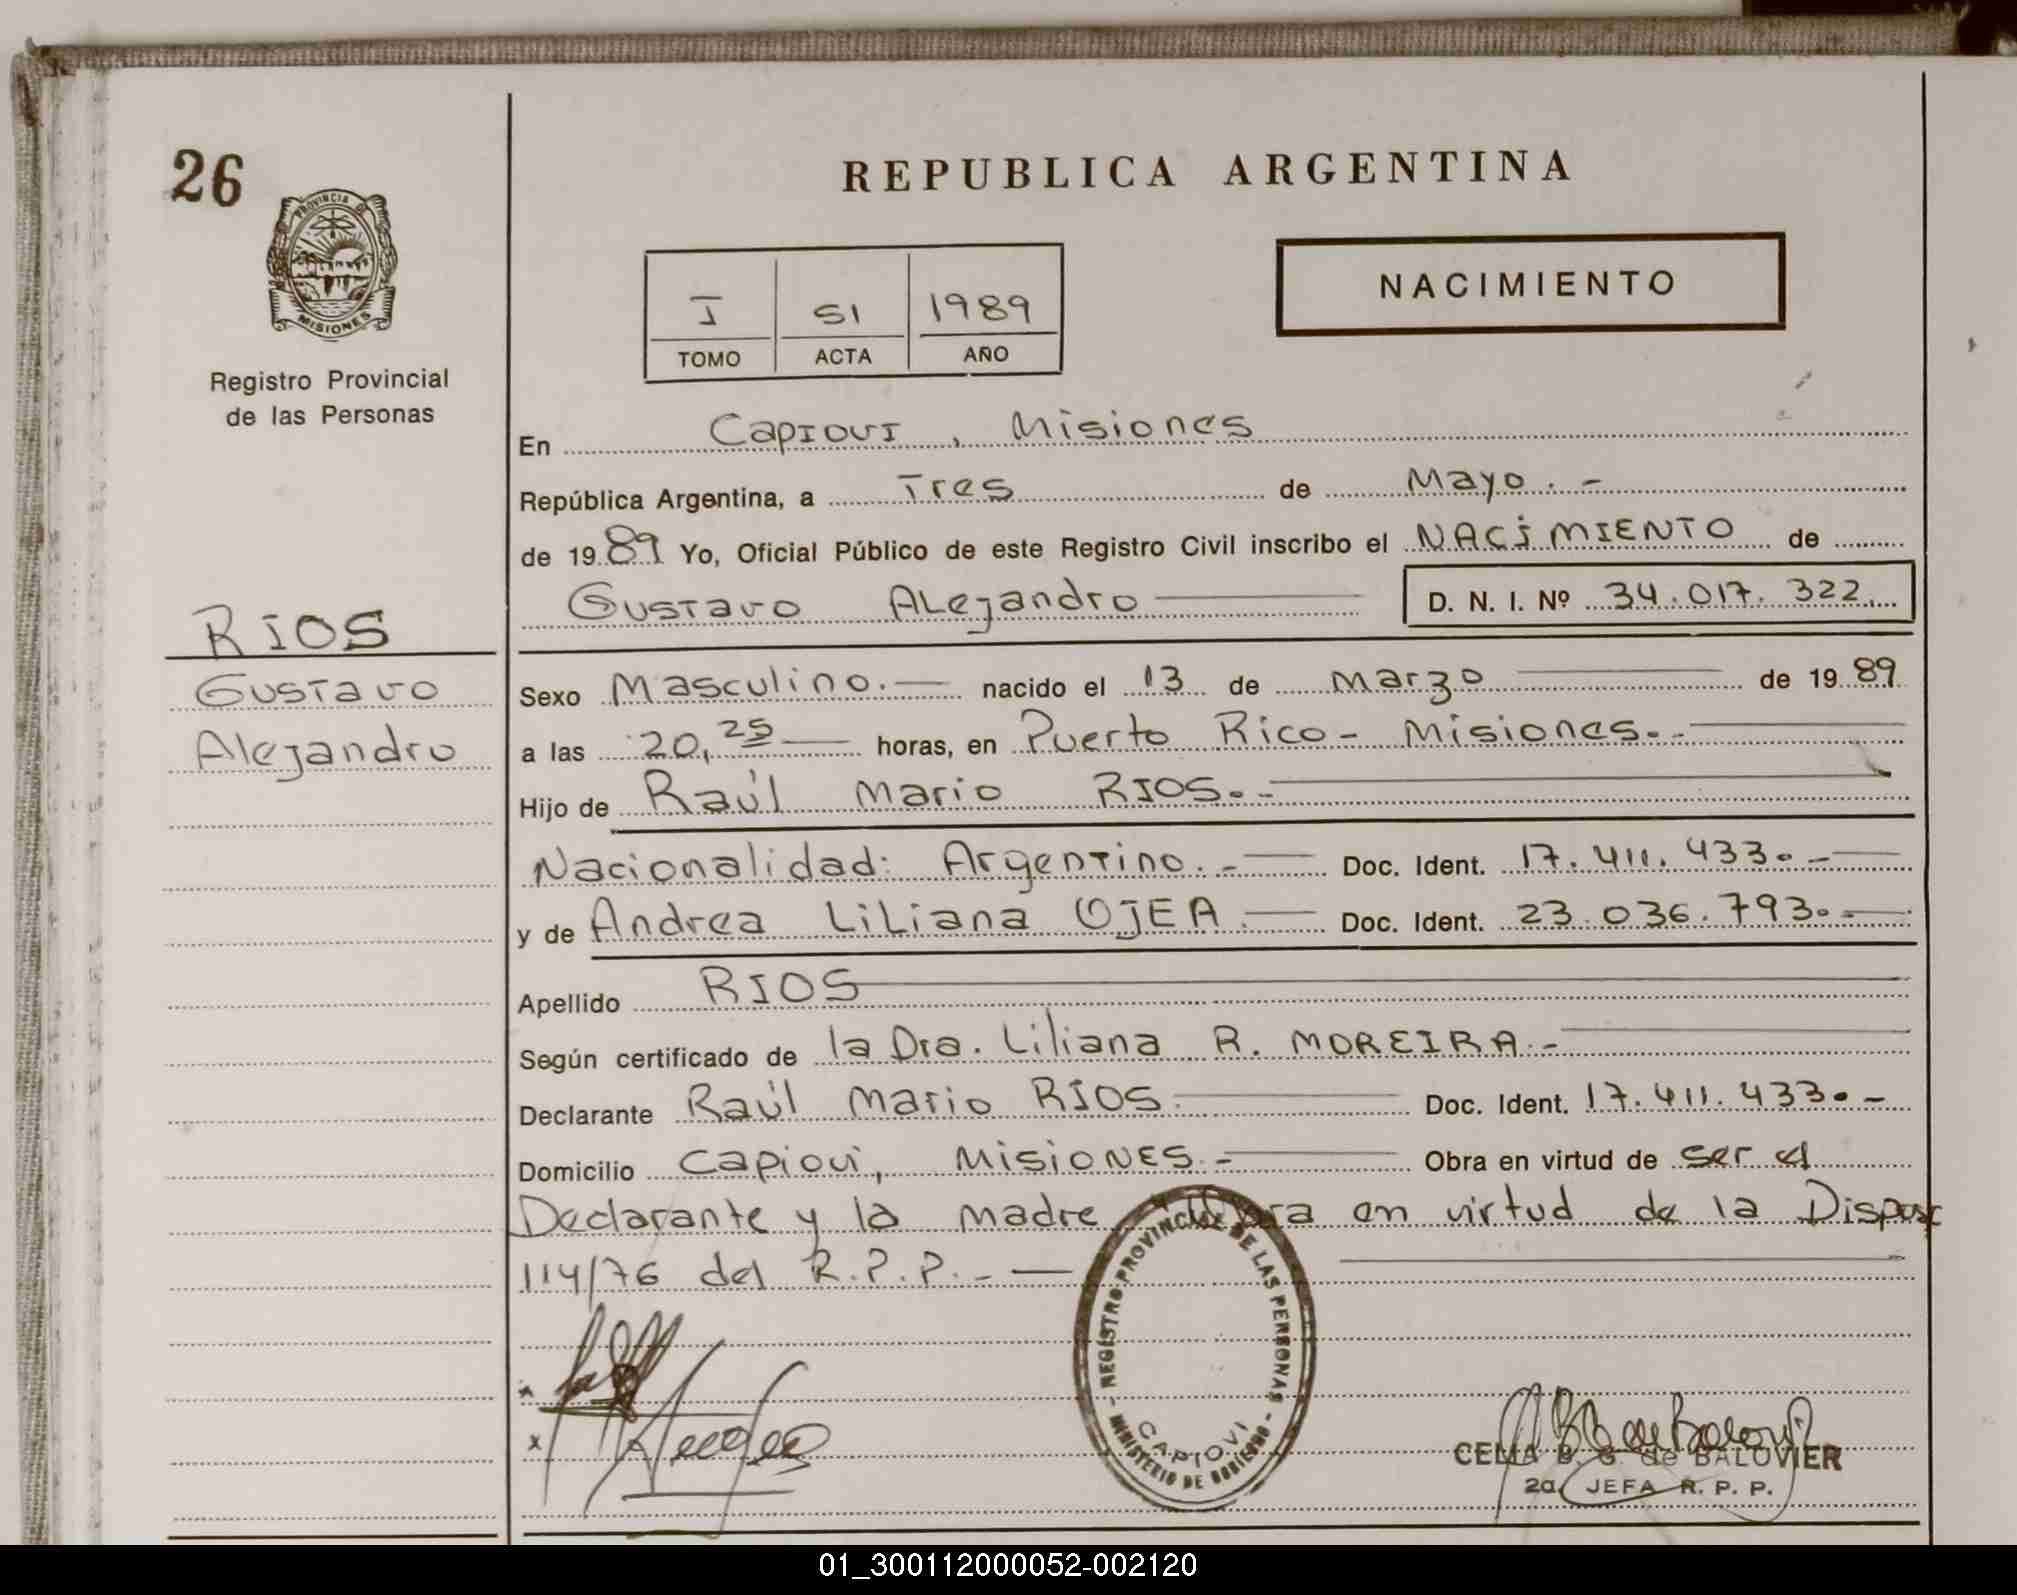 26
PROVINCIA DE
MISIONES
Registro Provincial
de las Personas
RIOS
Gustavo
Alejandro
REPUBLICA ARGENTINA
I 51 1989
TOMO ACTA AÑO
NACIMIENTO
En Capiovi, Misiones
República Argentina, a Tres de Mayo.-
de 1989 Yo, Oficial Público de este Registro Civil inscribo el NACIMIENTO de
Gustavo Alejandro D. N. I. Nº 34.017.322
Sexo Masculino.- nacido el 13 de Marzo de 1989
a las 20,25 horas, en Puerto Rico - Misiones.-
Hijo de Raúl Mario RIOS.-
Nacionalidad: Argentino.- Doc. Ident. 17.411.433.-
y de Andrea Liliana OJEA.- Doc. Ident. 23.036.793.-
Apellido RIOS
Según certificado de la Dra. Liliana R. MOREIRA.-
Declarante Raúl Mario RIOS. Doc. Ident. 17.411.433.-
Domicilio Capiovi, MISIONES.- Obra en virtud de ser el
Declarante y la madre en virtud de la Dispos
114/76 del R.P.P.-
REGISTRO PROVINCIAL DE LAS PERSONAS
CAPIOVI
MINISTERIO DE GOBIERNO
x
x
CELIA B. G. de BALOVIER
2a JEFA R. P. P.
01_300112000052-002120